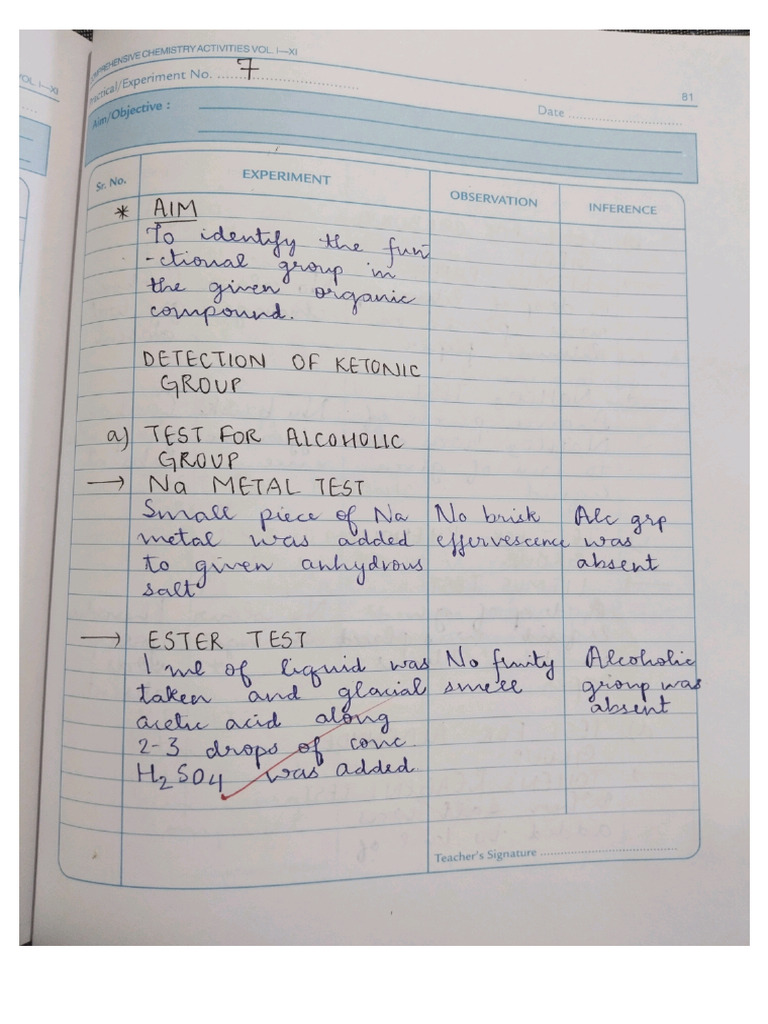 COMPREHENSIVE CHEMISTRY ACTIVITIES VOL. I—XI
VOL. I—XI
Practical/Experiment No. 7
81
Date
Aim/Objective :
Sr. No.
EXPERIMENT
OBSERVATION
INFERENCE
* AIM
To identify the fun
-ctional group in
the given organic
compound.
DETECTION OF KETONIC
GROUP
a) TEST FOR ALCOHOLIC
GROUP
→ Na METAL TEST
Small piece of Na No brisk Alc grp
metal was added effervescence was
to given anhydrous absent
salt
→ ESTER TEST
1 ml of liquid was No fruity Alcoholic
taken and glacial smell group was
acetic acid along absent
2-3 drops of conc.
H2SO4 was added.
Teacher's Signature